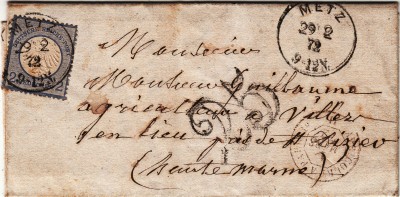 METZ
29 2
72
9-12N.
METZ
29 2
72
9-12N.
Monsieur
Monsieur Guillaume
agriculteur à Villers
en lieu près de St Dizier
(haute marne)
25